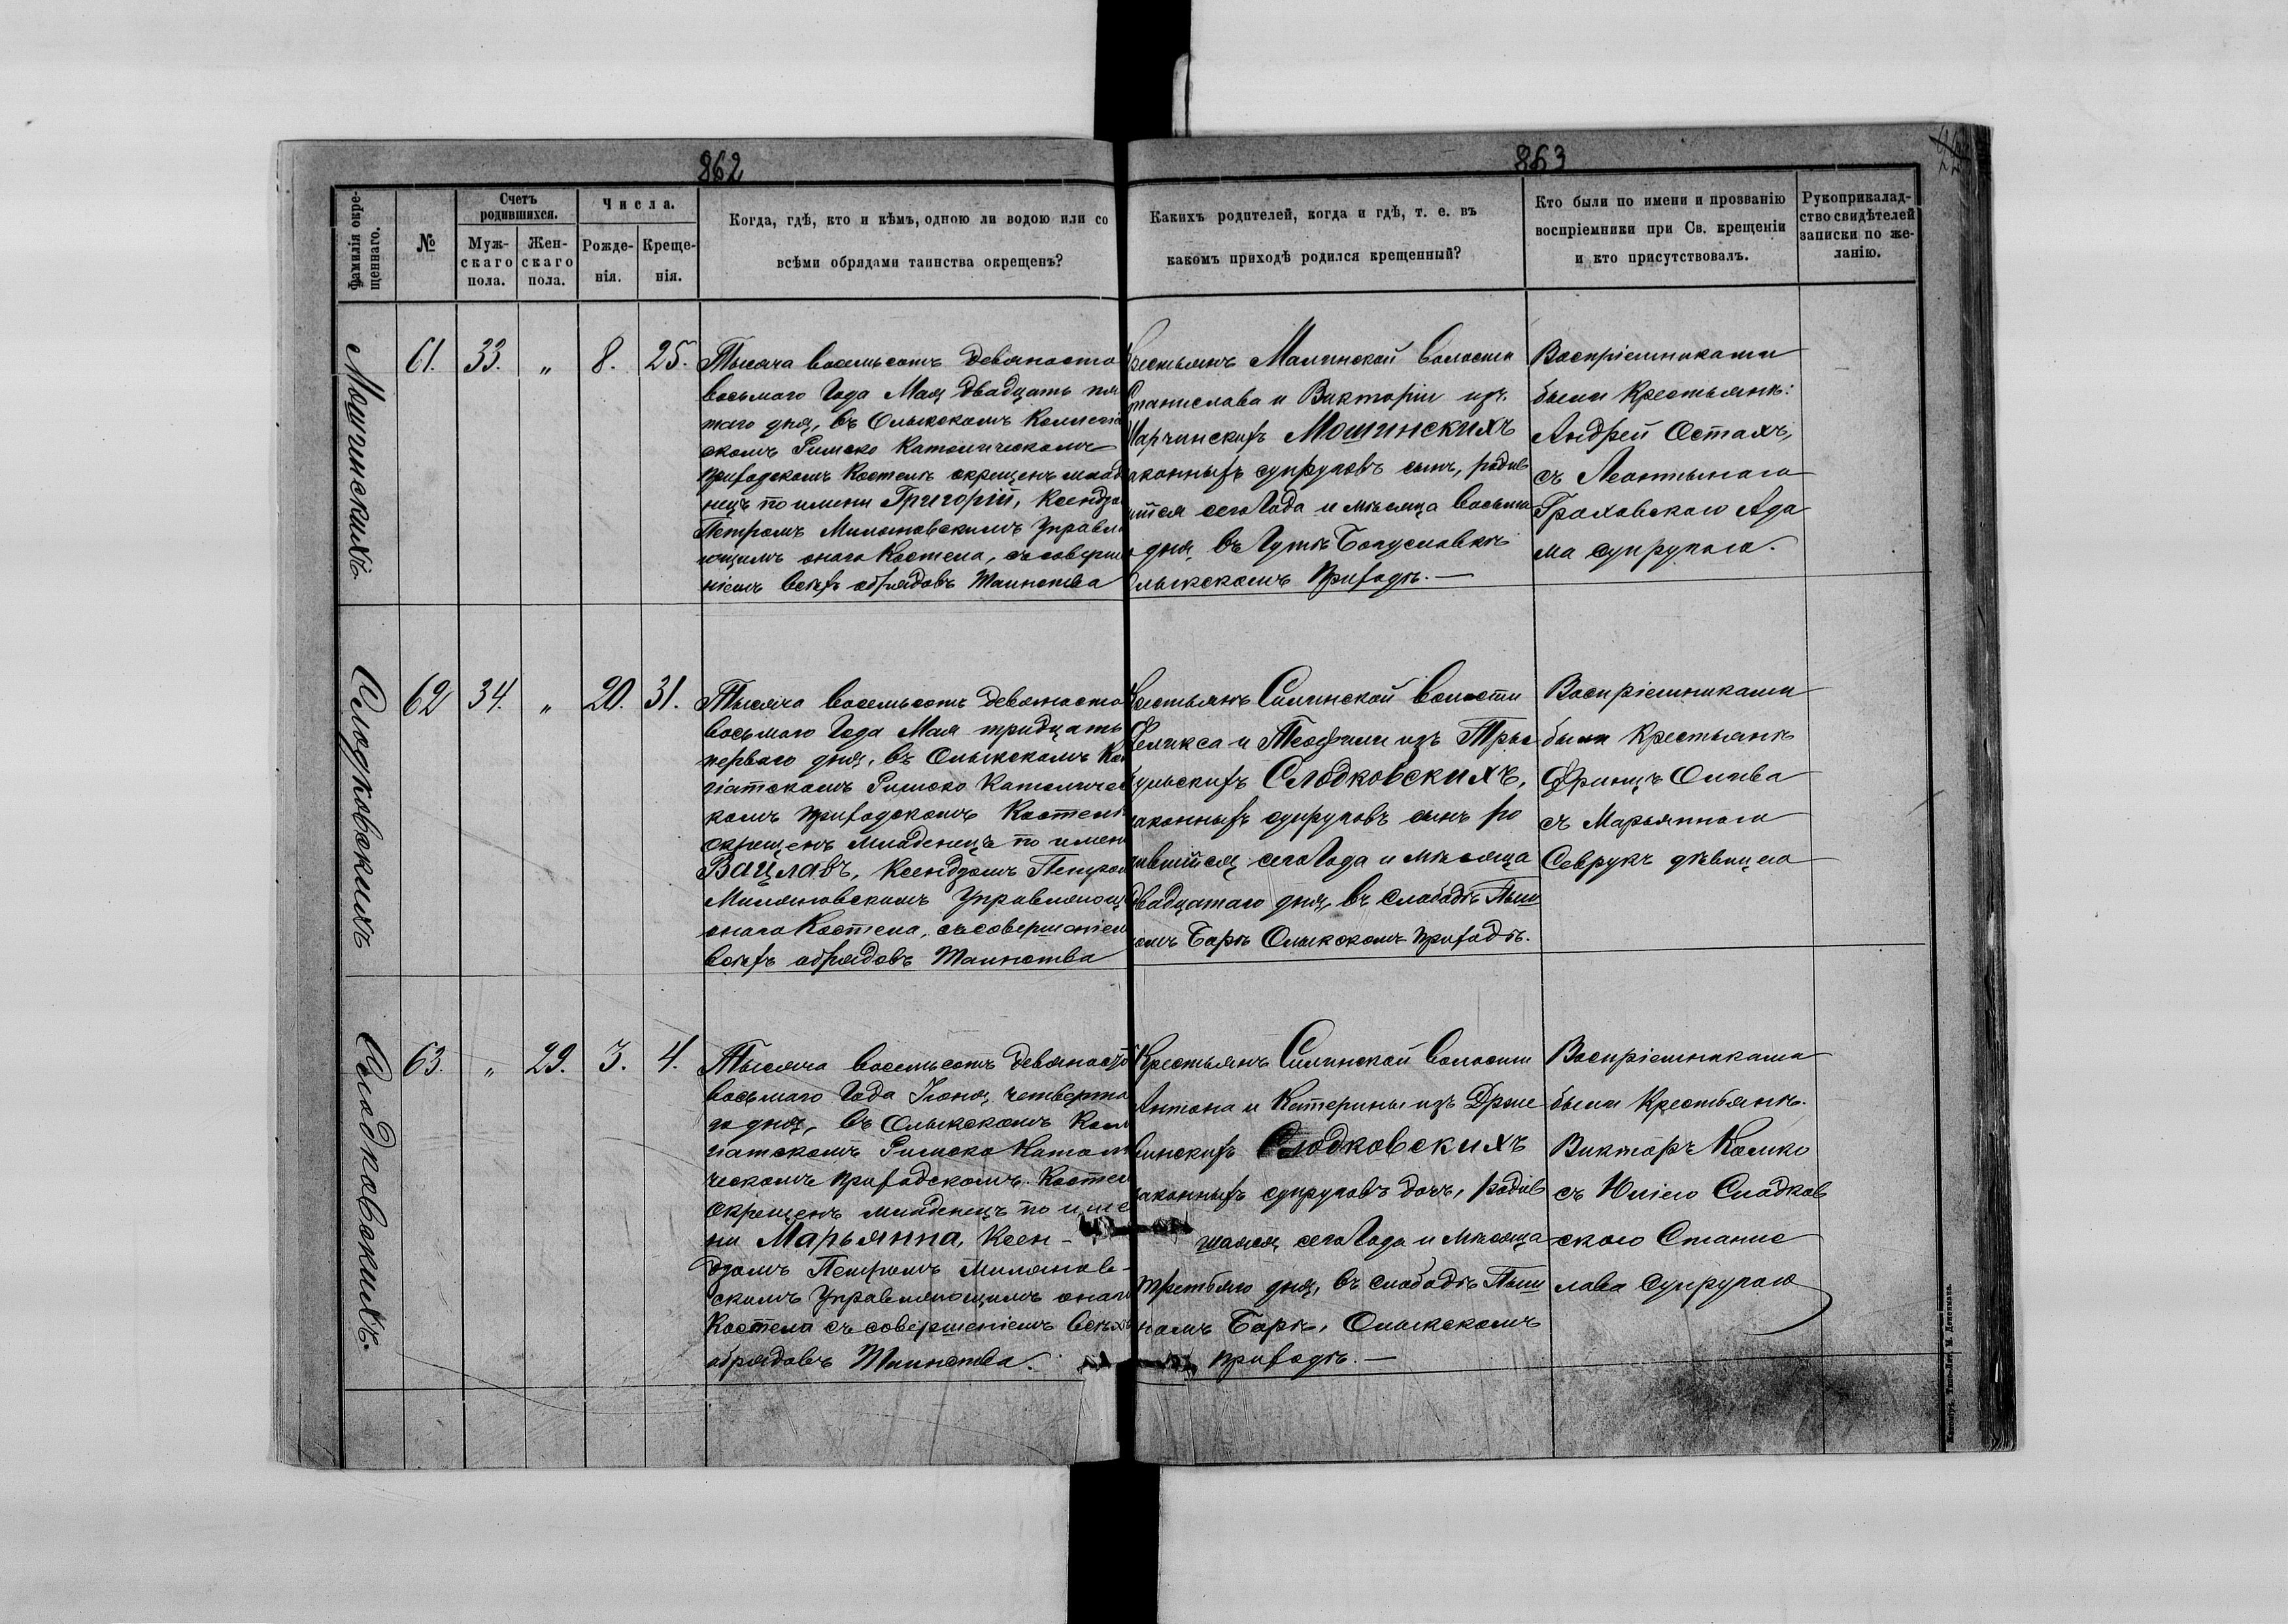 862
863
фамилія окре-
щеннаго.
№
Счетъ
родившихся.
Муж-
скаго
пола.
Жен-
скаго
пола.
Числа.
Рожде-
нія.
Креще-
нія.
Когда, гдѣ, кто и кѣмъ, одною ли водою или со
всѣми обрядами таинства окрещенъ?
Какихъ родителей, когда и гдѣ, т. е. въ
какомъ приходѣ родился крещенный?
Кто были по имени и прозванію
воспріемники при Св. крещеніи
и кто присутствовалъ.
Рукоприкалад-
ство свидѣтелей
записки по же-
ланію.
Мошинскихъ
61. 33. „ 8. 25.
Тысяча восемьсотъ девяносто
восьмаго Года Мая двадцать пя
таго дня, въ Олыкскомъ Коллегіа
скомъ Римско Католическомъ
приходскомъ Костелѣ окрещенъ младе
нецъ по имени Григорій, Ксендзо
Петромъ Миляновскимъ Управля
ющимъ онаго Костела, съ соверше
ніемъ всѣхъ обрядовъ Таинства
Крестьянъ Малинской волости
Станислава и Викторіи изъ
Марчинскихъ Мошинскихъ
законныхъ супруговъ сынъ, родив
шійся сего Года и мѣсяца восьма
дня въ Гутѣ Богуславкѣ
Олыкскомъ приходѣ. —
Воспріемниками
были Крестьянъ:
Андрей Остахъ,
съ Леонтыною
Граховскою Ада
ма супругою.
Слодковскихъ
62 34. „ 20. 31.
Тысяча восемьсотъ девяносто
восьмаго Года Мая тридцать
перваго дня, въ Олыкскомъ Кол
гіатскомъ Римско Католичес
комъ приходскомъ Костелѣ
окрещенъ младенецъ по имени
Вацлавъ, Ксендзомъ Петром
Миляновскимъ Управляющ
онаго Костела, съ совершеніем
всѣхъ обрядовъ Таинства
Крестьянъ Силинской волости
Феликса и Теофили изъ Тры
бульскихъ Слодковскихъ,
законныхъ супруговъ сынъ ро
дившійся сего Года и мѣсяца
двадцатаго дня, въ слободѣ Пыш
номъ Барѣ Олыкскомъ приходѣ.
Воспріемниками
были Крестьянъ
Францъ Олива
съ Марьянною
Севрукъ дѣвицею
Слодковскихъ.
63. „ 29. 3. 4.
Тысяча восемьсотъ девяносто
восьмаго Года Іюня четверта
го дня, въ Олыкскомъ Колл
гіатскомъ Римско Католи
ческомъ приходскомъ Костел
окрещенъ младенецъ по име
ни Марьянна, Ксен-
дзомъ Петромъ Миляновс-
скимъ Управляющимъ онаго
Костела съ совершеніемъ всѣхъ
обрядовъ Таинства.
Крестьянъ Силинской волости
Антона и Катерины изъ Држе
винскихъ Слодковскихъ
законныхъ супруговъ дочь, родив
шаяся сего Года и мѣсяца
третьяго дня, въ слободѣ Пыш
номъ Барѣ, Олыкскомъ
приходѣ. —
Воспріемниками
были Крестьянъ.
Викторъ Колко
съ Юліею Слодков
скою Станис
лава Супругою